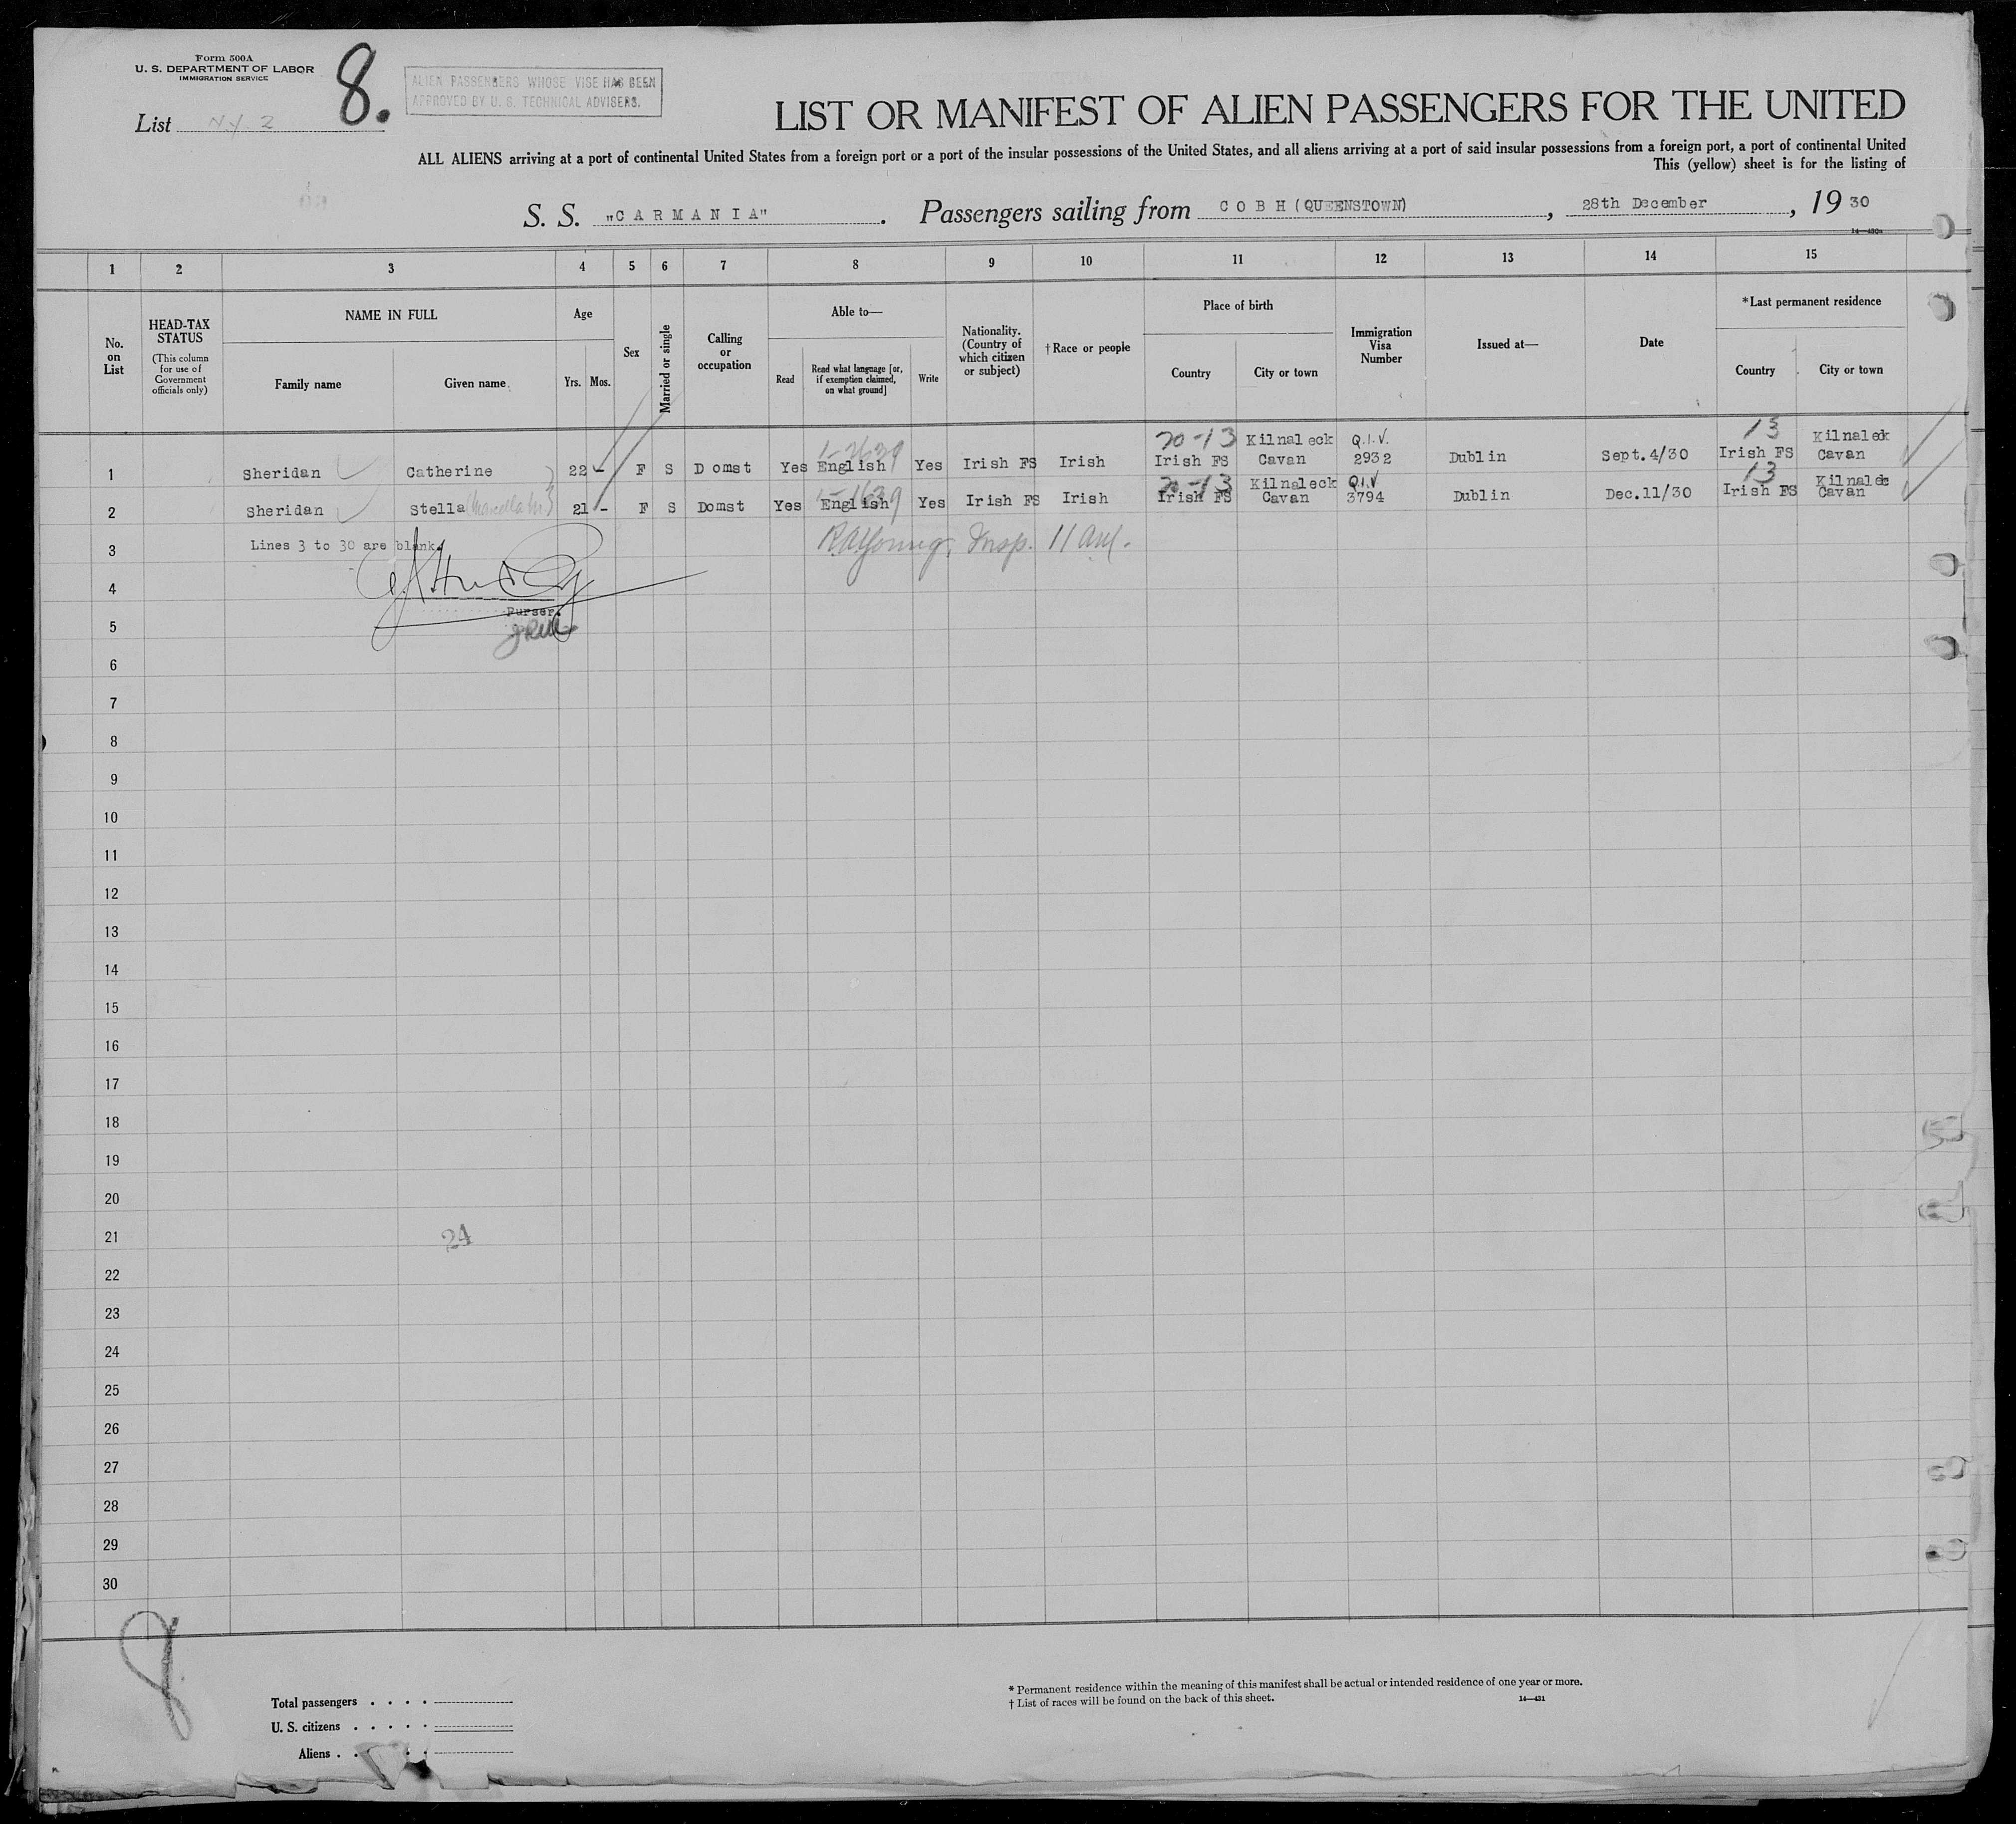 Form 500A
U. S. DEPARTMENT OF LABOR
IMMIGRATION SERVICE
8.
ALIEN PASSENGERS WHOSE VISE HAS BEEN
APPROVED BY U. S. TECHNICAL ADVISERS.
List N.Y. 2
LIST OR MANIFEST OF ALIEN PASSENGERS FOR THE UNITED
ALL ALIENS arriving at a port of continental United States from a foreign port or a port of the insular possessions of the United States, and all aliens arriving at a port of said insular possessions from a foreign port, a port of continental United
This (yellow) sheet is for the listing of
S. S. "CARMANIA". Passengers sailing from COBH (QUEENSTOWN), 28th December, 19 30
1 2 3 4 5 6 7 8 9 10 11 12 13 14 15
No. on List
HEAD-TAX STATUS
(This column for use of Government officials only)
NAME IN FULL
Family name
Given name
Age
Yrs. Mos.
Sex
Married or single
Calling or occupation
Able to—
Read
Read what language [or, if exemption claimed, on what ground]
Write
Nationality. (Country of which citizen or subject)
† Race or people
Place of birth
Country
City or town
Immigration Visa Number
Issued at—
Date
*Last permanent residence
Country
City or town
20-13 Kilnaleck Q.I.V. 13 Kilnaleck
1 Sheridan Catherine 22 - F S Domst Yes English Yes Irish FS Irish Irish FS Cavan 2932 Dublin Sept. 4/30 Irish FS Cavan
20-13 Kilnaleck Q.I.V 13 Kilnaleck
2 Sheridan Stella 21 - F S Domst Yes English Yes Irish FS Irish Irish FS Cavan 3794 Dublin Dec. 11/30 Irish FS Cavan
3 Lines 3 to 30 are blank. Insp.
4
Purser.
5
6
7
8
9
10
11
12
13
14
15
16
17
18
19
20
21 24
22
23
24
25
26
27
28
29
30
8
Total passengers . . . .
U. S. citizens . . . . .
Aliens . . . .
* Permanent residence within the meaning of this manifest shall be actual or intended residence of one year or more.
† List of races will be found on the back of this sheet. 14—431